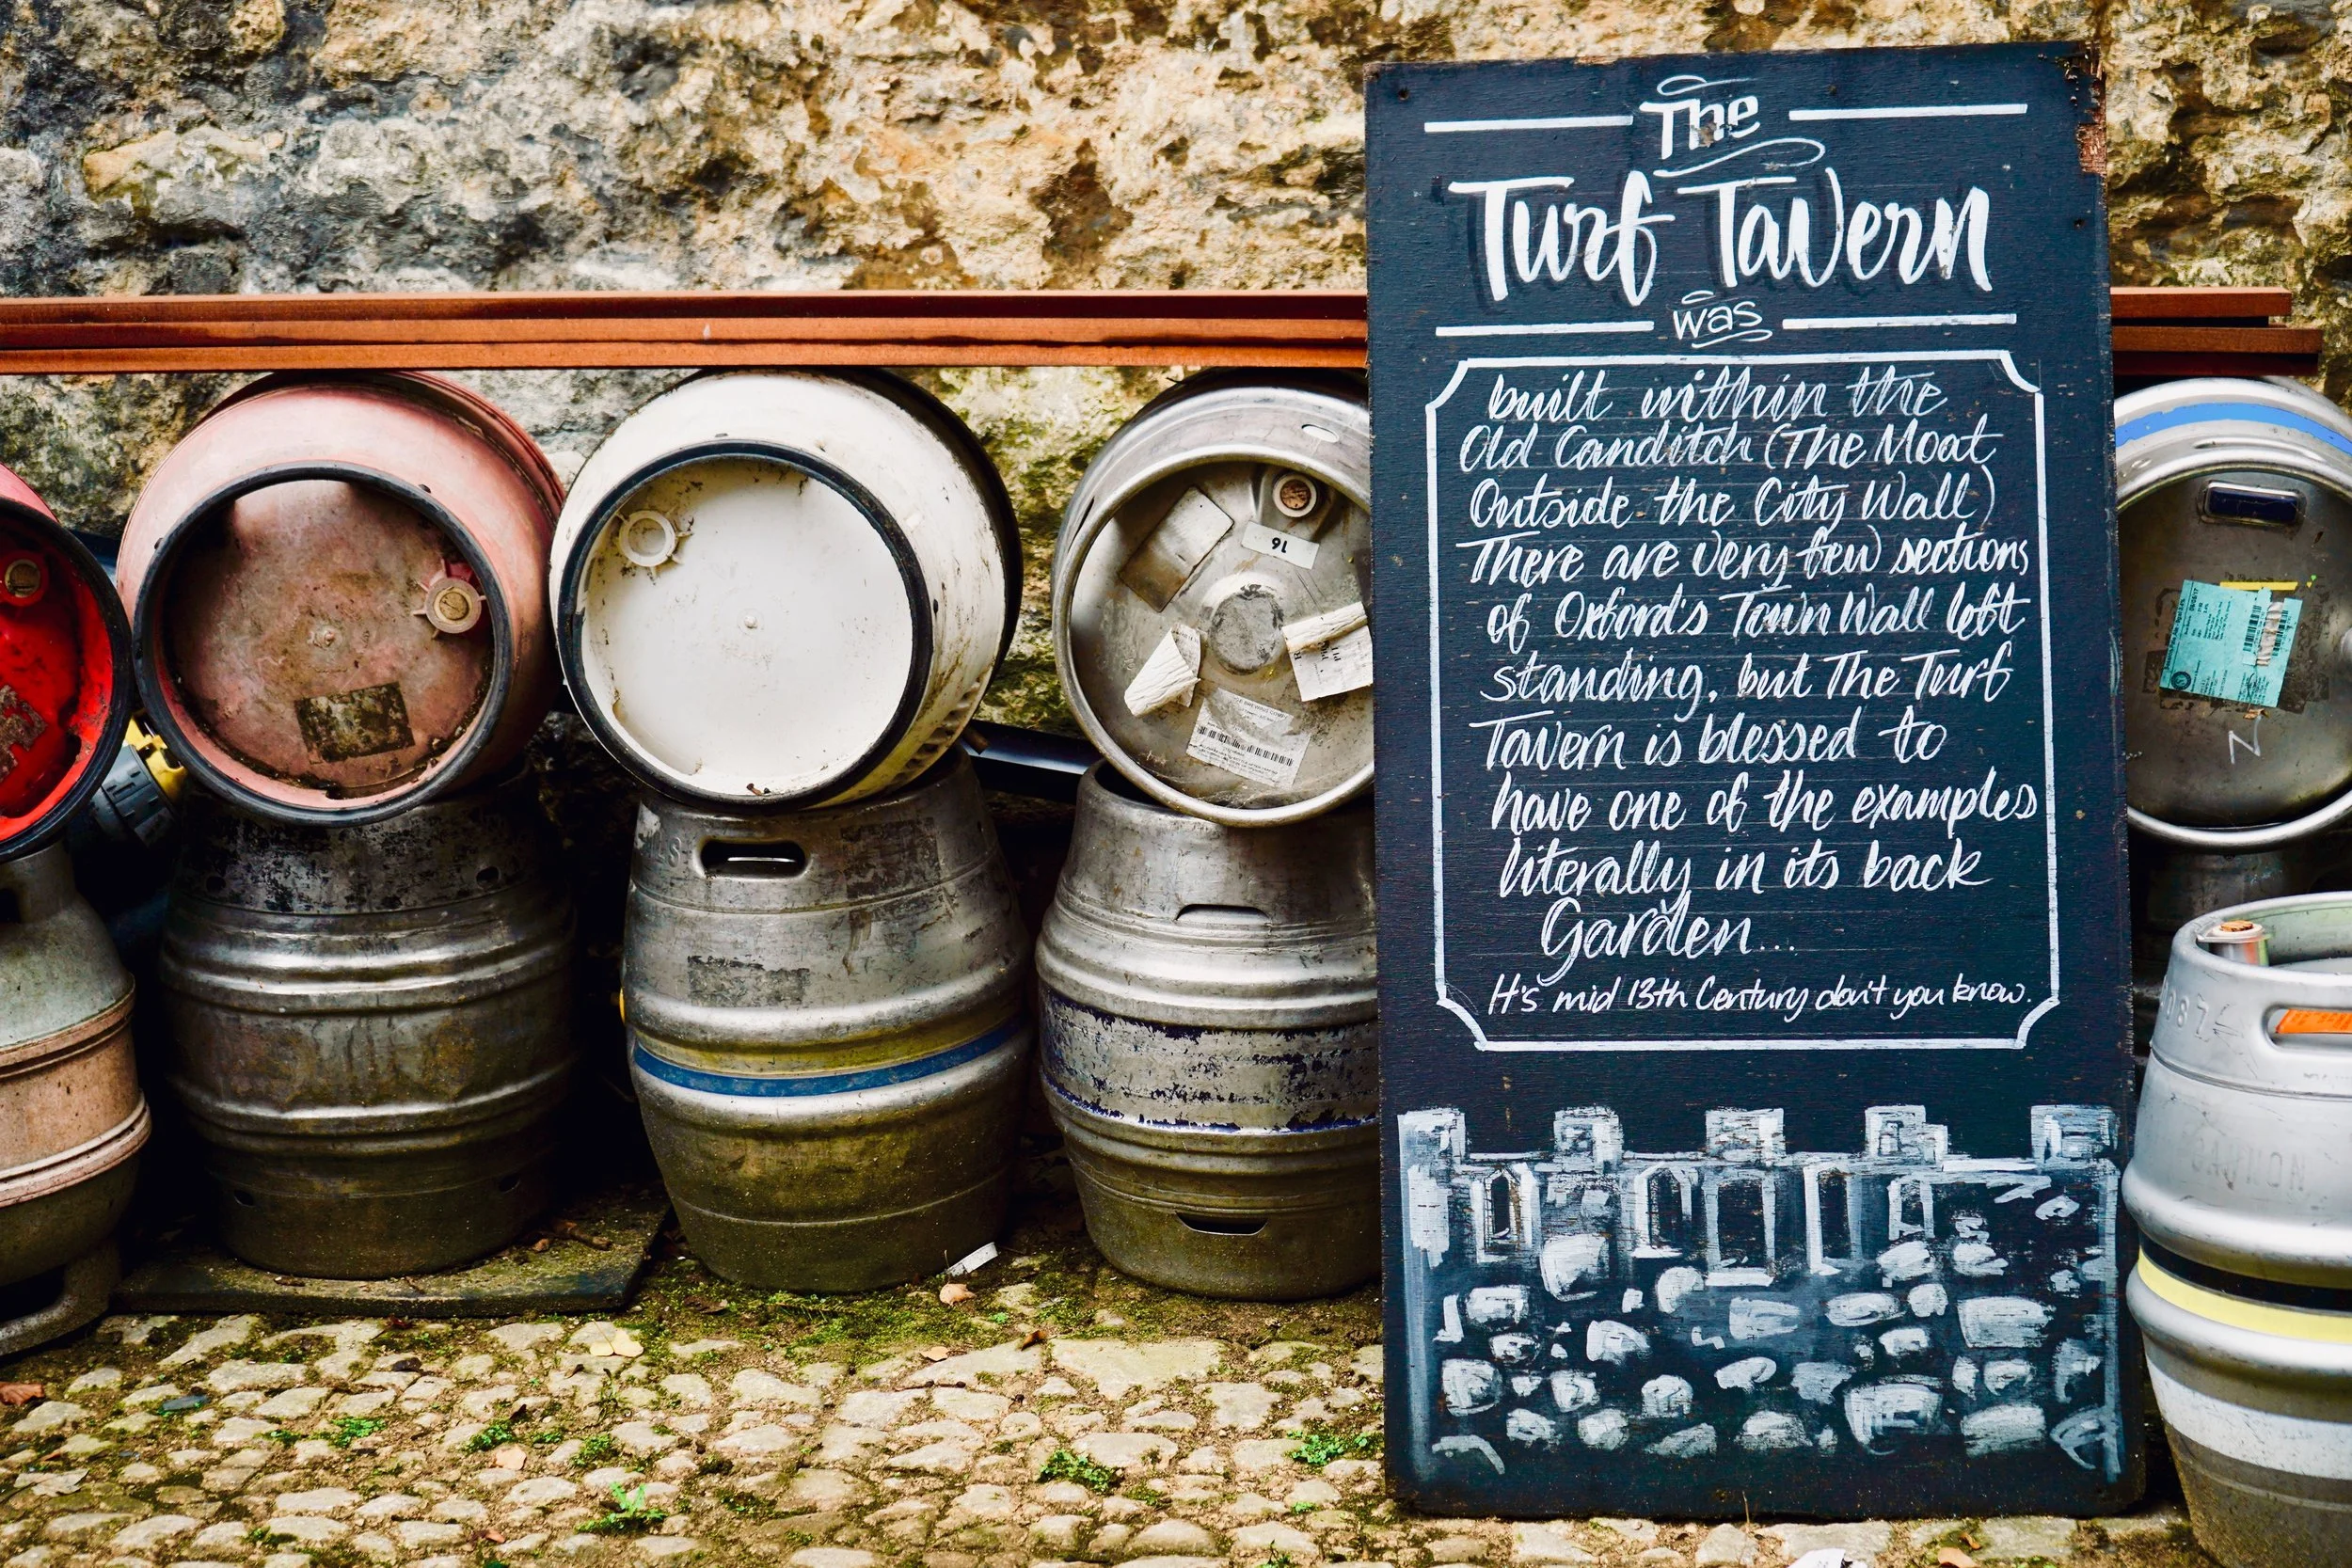 The
Turf Tavern
was
built within the
Old Canditch (The Moat
Outside the City Wall)
There are very few sections
of Oxford's Town Wall left
standing, but The Turf
Tavern is blessed to
have one of the examples
literally in its back
Garden...
It's mid 13th Century don't you know.
16
N